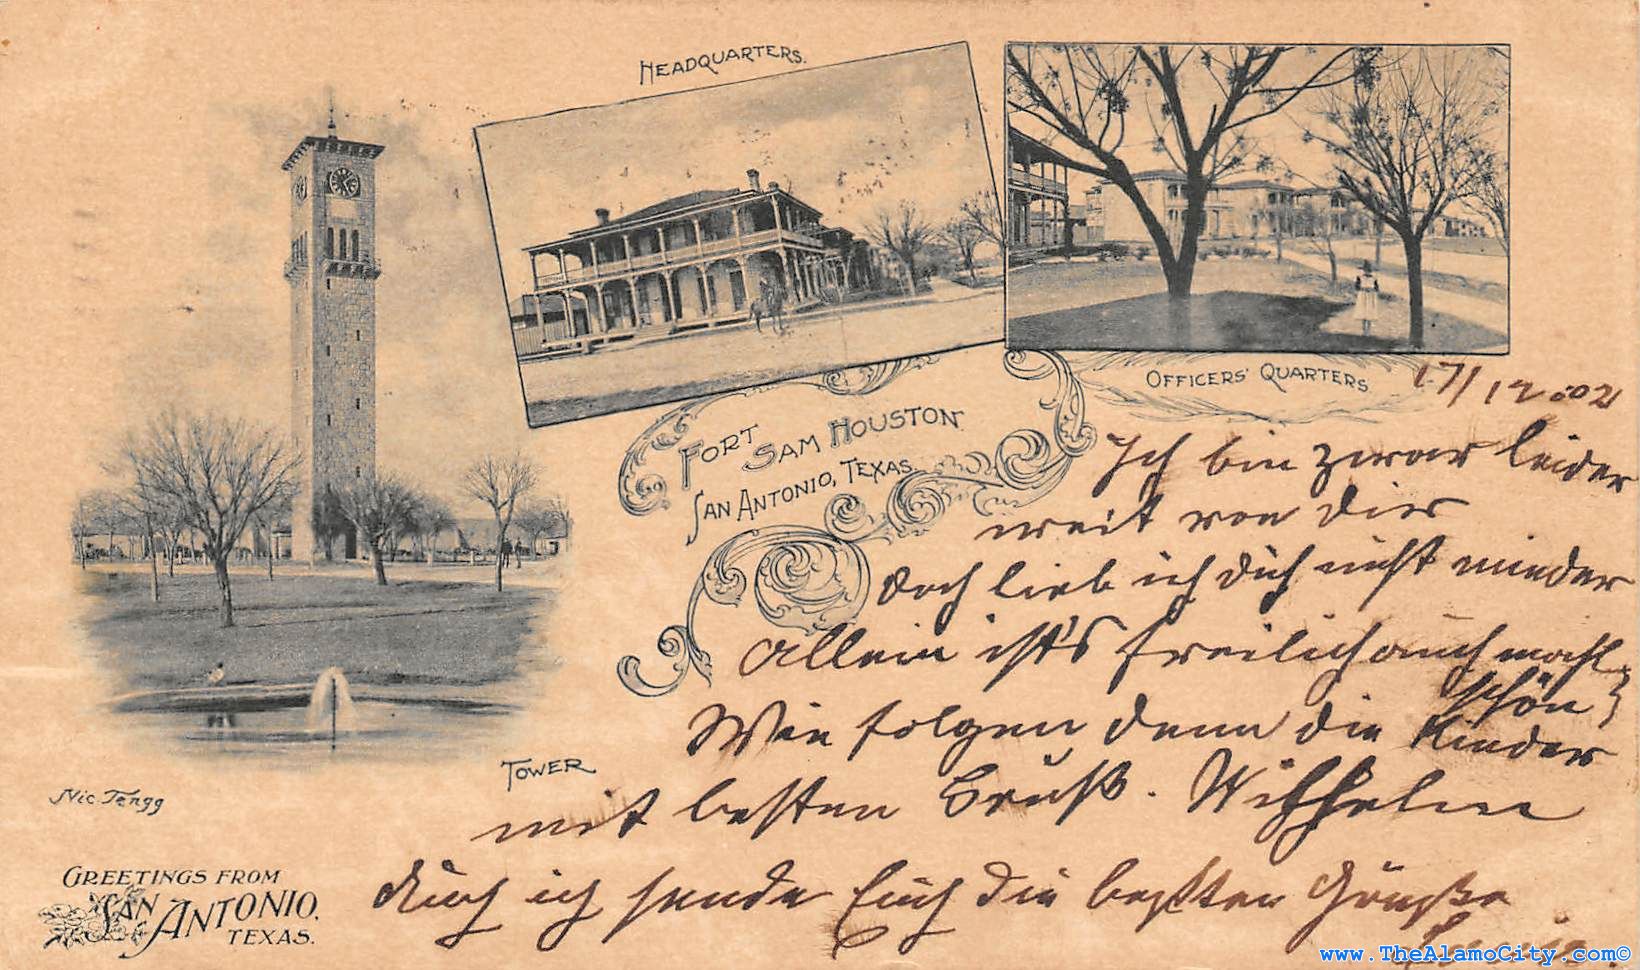 HEADQUARTERS.
OFFICERS' QUARTERS
FORT SAM HOUSTON
SAN ANTONIO, TEXAS.
TOWER
Nic Tengg
GREETINGS FROM
SAN ANTONIO,
TEXAS.
17/12.02
Ich bin zwar leider
weit von Dir
doch lieb ich Dich nicht minder
Allein ist's freilich auch mahl
schön
Wie folgen denn die Kinder
mit besten Gruß. Wilhelm
Auch ich sende Euch die besten Grüße
www.TheAlamoCity.com©